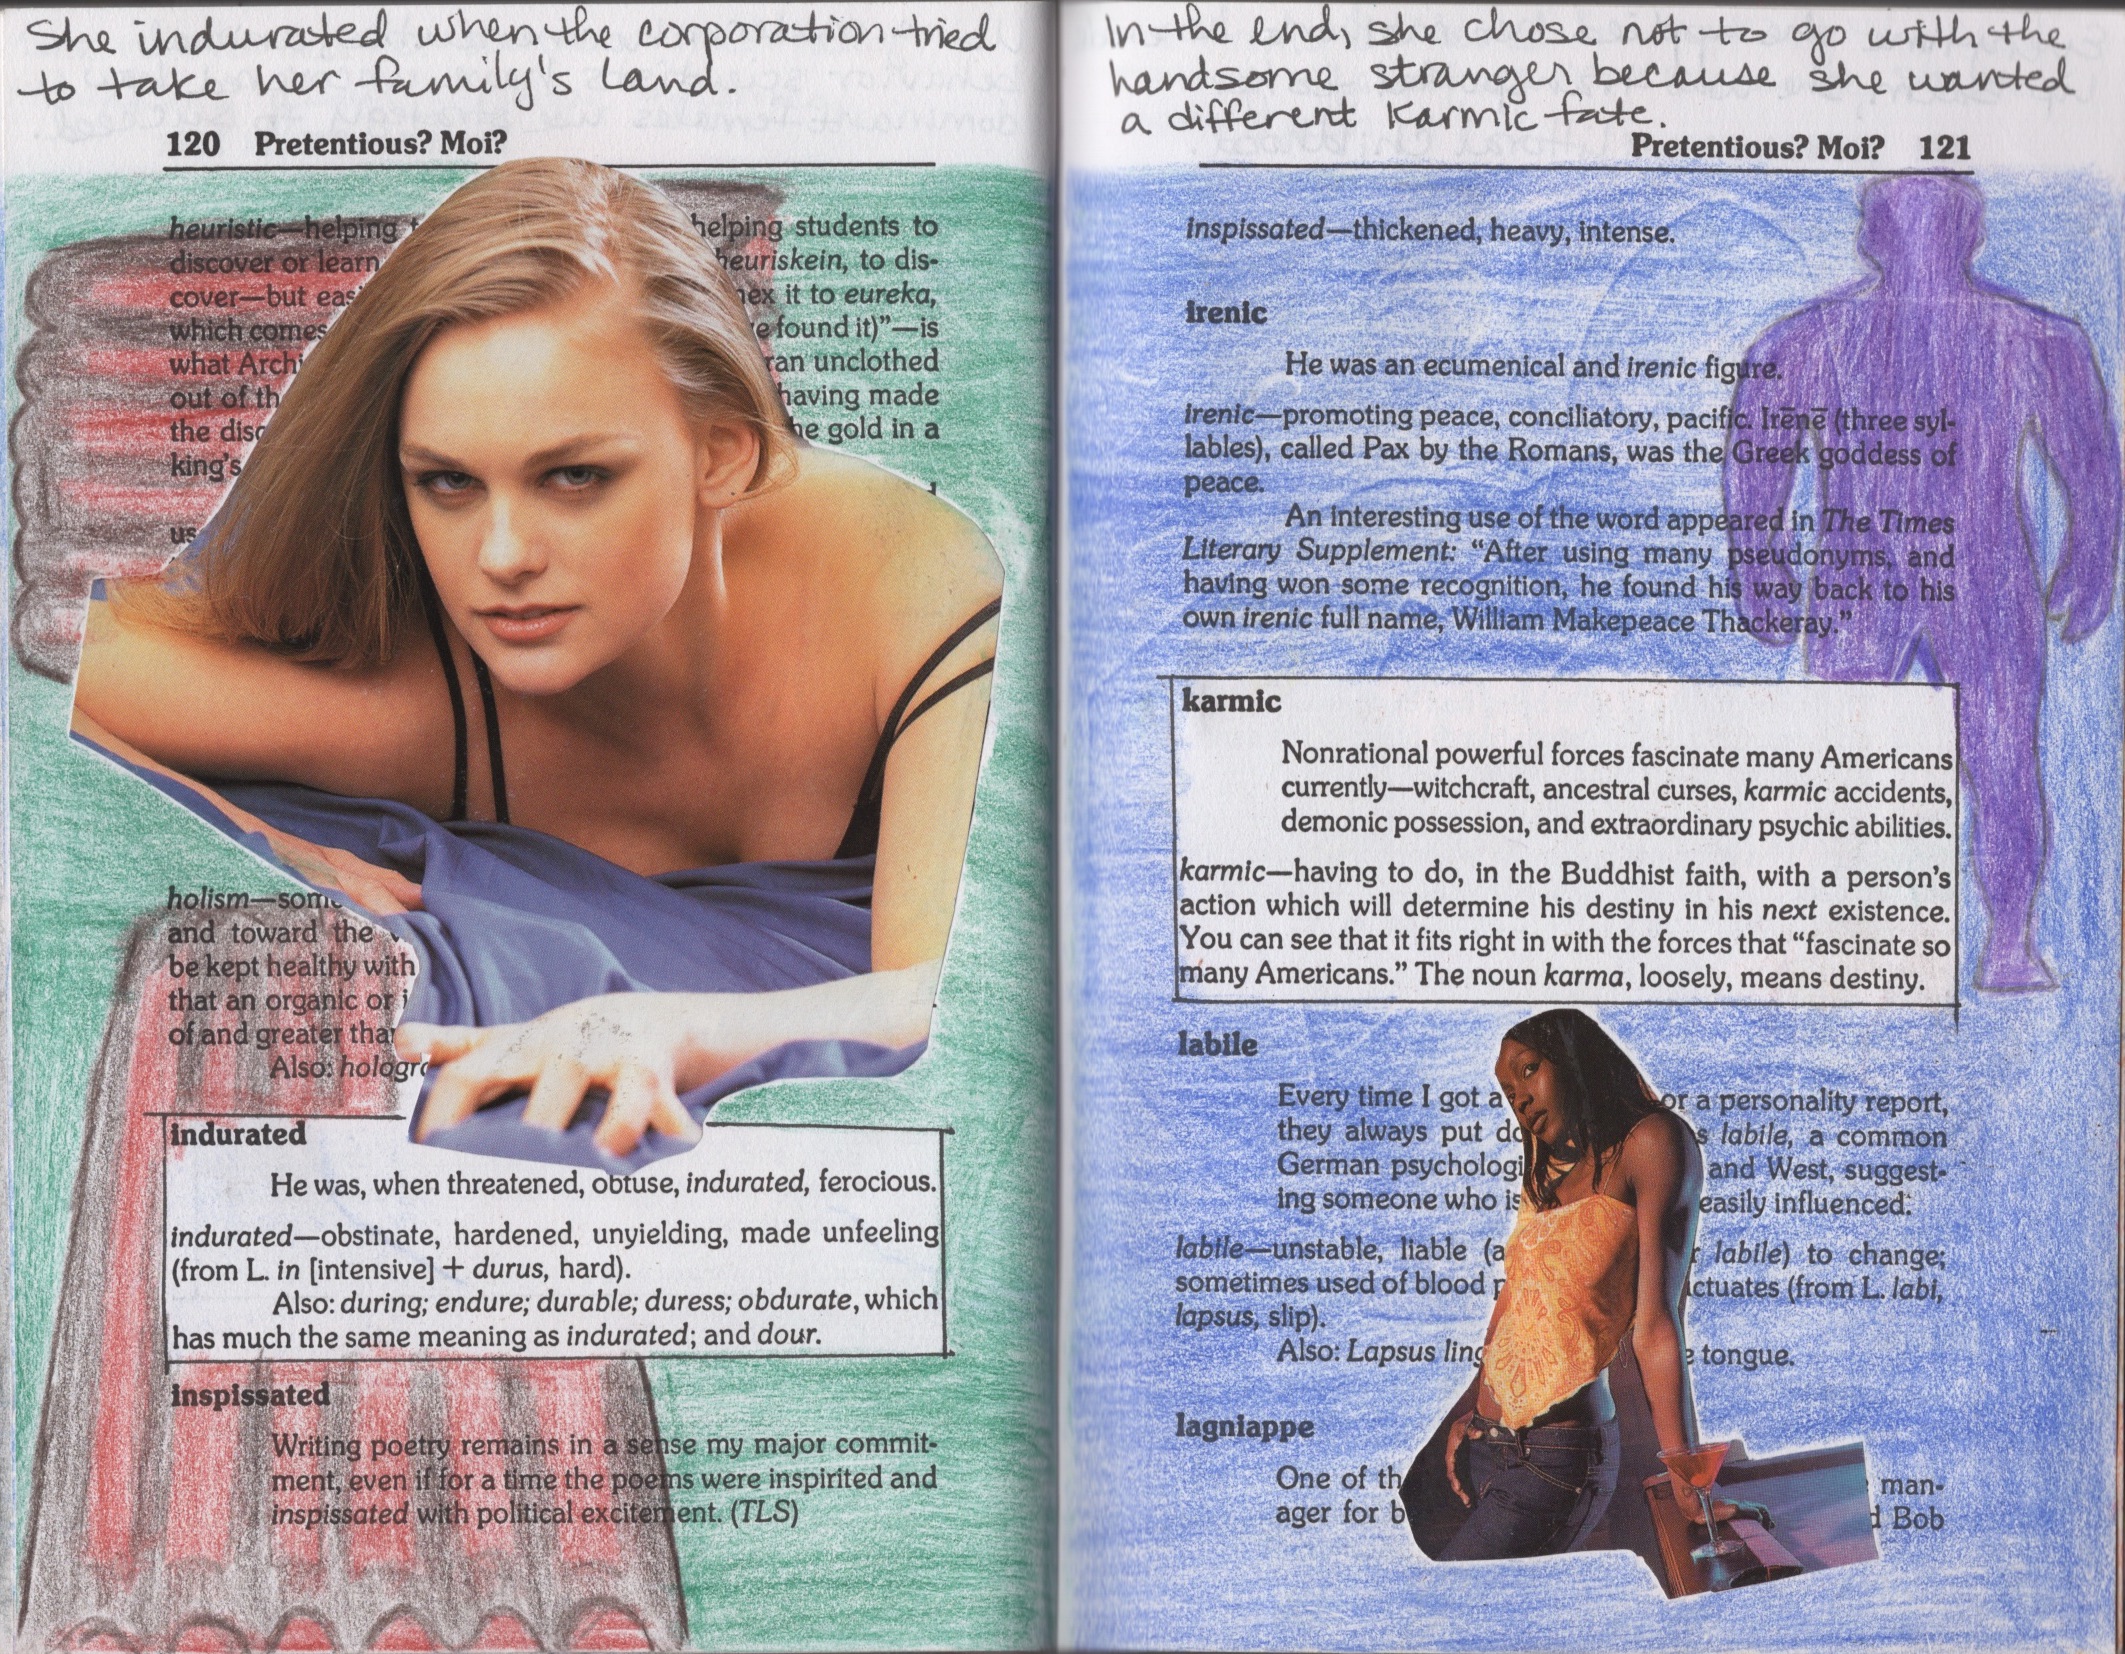 She indurated when the corporation tried
to take her family's land.
120 Pretentious? Moi?
heuristic—helping helping students to
discover or learn heuriskein, to dis-
cover—but it to eureka,
which comes found it)"—is
what ran unclothed
out of having made
the gold in a
king's
us
holism—
and toward the
be kept healthy with
that an organic or
of and greater
Also:
indurated
He was, when threatened, obtuse, indurated, ferocious.
indurated—obstinate, hardened, unyielding, made unfeeling
(from L. in [intensive] + durus, hard).
Also: during; endure; durable; duress; obdurate, which
has much the same meaning as indurated; and dour.
inspissated
Writing poetry remains in a sense my major commit-
ment, even if for a time the poems were inspirited and
inspissated with political excitement. (TLS)
In the end, she chose not to go with the
handsome stranger because she wanted
a different Karmic fate.
Pretentious? Moi? 121
inspissated—thickened, heavy, intense.
irenic
He was an ecumenical and irenic figure.
irenic—promoting peace, conciliatory, pacific. Irēnē (three syl-
lables), called Pax by the Romans, was the Greek goddess of
peace.
An interesting use of the word appeared in The Times
Literary Supplement: "After using many pseudonyms, and
having won some recognition, he found his way back to his
own irenic full name, William Makepeace Thackeray."
karmic
Nonrational powerful forces fascinate many Americans
currently—witchcraft, ancestral curses, karmic accidents,
demonic possession, and extraordinary psychic abilities.
karmic—having to do, in the Buddhist faith, with a person's
action which will determine his destiny in his next existence.
You can see that it fits right in with the forces that "fascinate so
many Americans." The noun karma, loosely, means destiny.
labile
Every time I got a or a personality report,
they always put labile, a common
German and West, suggest-
ing someone who is easily influenced.
labile—unstable, liable labile) to change;
sometimes used of blood (from L. labi,
lapsus, slip).
Also: Lapsus tongue.
lagniappe
One of man-
ager for Bob